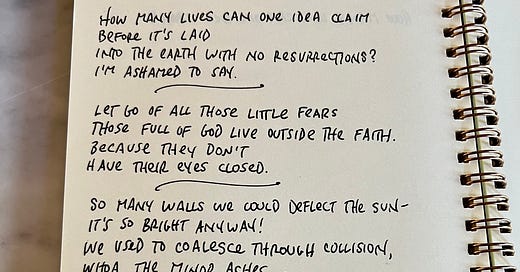 HOW MANY LIVES CAN ONE IDEA CLAIM
BEFORE IT'S LAID
INTO THE EARTH WITH NO RESURRECTIONS?
I'M ASHAMED TO SAY.
LET GO OF ALL THOSE LITTLE FEARS
THOSE FULL OF GOD LIVE OUTSIDE THE FAITH.
BECAUSE THEY DON'T
HAVE THEIR EYES CLOSED.
SO MANY WALLS WE COULD DEFLECT THE SUN-
IT'S SO BRIGHT ANYWAY!
WE USED TO COALESCE THROUGH COLLISION,
THE MINOR ASHES